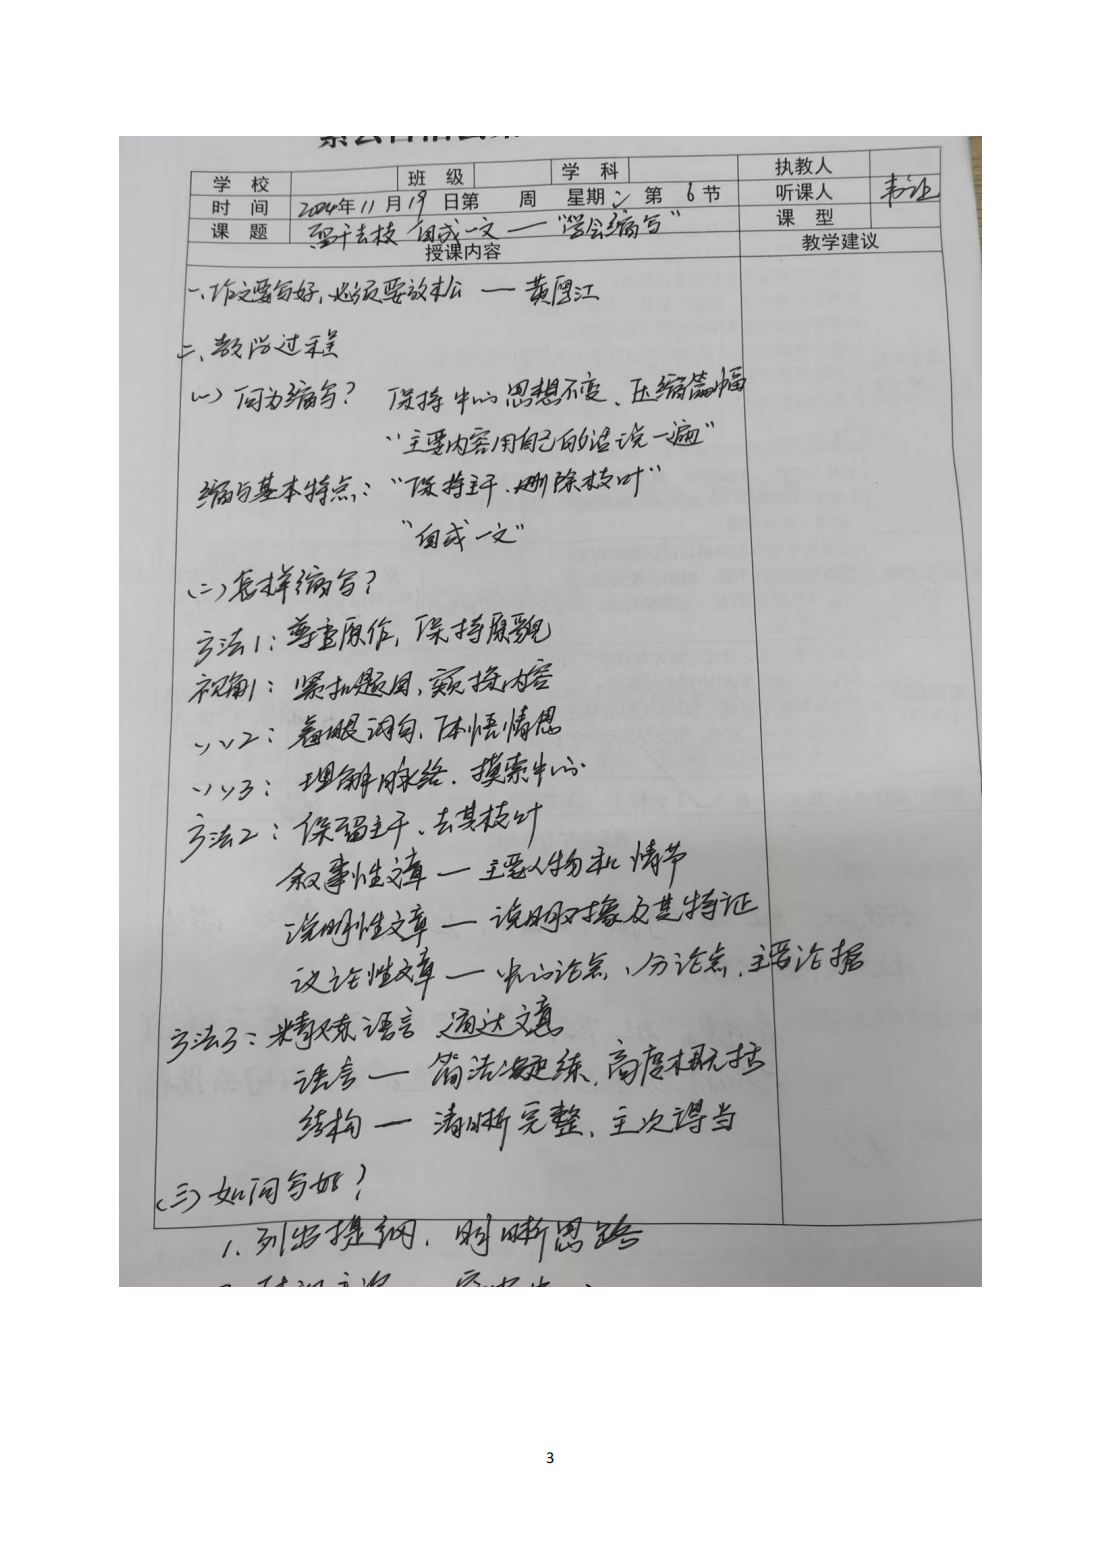 学 校 班 级 学 科 执教人
时 间 2024年11月19日第 周 星期二 第 6 节 听课人
课 题 留干去枝 自成一文—“学会缩写” 课 型
授课内容 教学建议
一、作文要写好，必须要放本公 — 黄厚江
二、教学过程
(一) 何为缩写？ 保持中心思想不变、压缩篇幅
“主要内容用自己的话说一遍”
缩写基本特点：“保持主干、删除枝叶”
“自成一文”
(二) 怎样缩写？
方法1：尊重原作，保持原貌
视角1：紧扣题目，寻找内容
〃〃2：着眼词句，体悟情思
〃〃3：理解脉络，摸索中心
方法2：保留主干、去其枝叶
叙事性文章 — 主要人物和情节
说明性文章 — 说明对象及其特证
议论性文章 — 中心论点、分论点、主要论据
方法3：精炼语言 通达文意
语言 — 简洁凝练，高度概括
结构 — 清晰完整、主次得当
(三) 如何写好？
1. 列出提纲，明晰思路
3